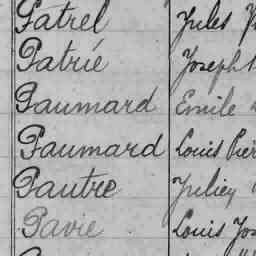 Patrel Jules
Patrié Joseph
Paumard Emile
Paumard Louis Pier
Pautre Julien
Pavie Louis Jos